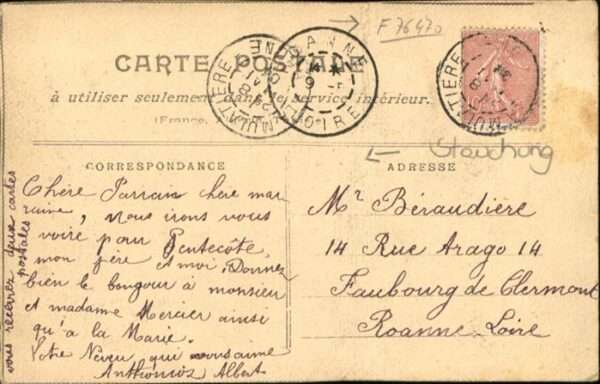 F 76470
CARTE POSTALE
à utiliser seulement dans le service intérieur.
(France,
LA MULATIERE
ROANNE
LOIRE
LA MULATIERE
Stauchung
CORRESPONDANCE
ADRESSE
Chère Parrain chere mar
raine, Nous irons vous
voire pour Pentecôte,
mon fère et moi, Donnez
bien le bongour à monsieur
et madame Mercier ainsi
qu'a la Marie.
Votre Neveu qui vous aime
Albert
vous recevrez deux cartes
postales
Mr Béraudière
14 Rue Arago 14
Faubourg de Clermont
Roanne-Loire